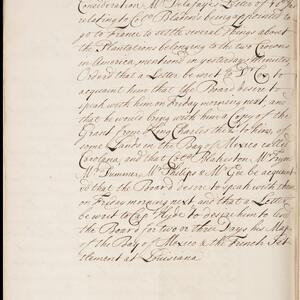 Consideration Mr. Delafaye's Letter of
relating to Colo. Bladen's being appointed to
go to France to settle several things about
the Plantations belonging to the two Crowns
in America, mentioned in yesterday's Minutes,
Order'd that a Letter be wrot to
acquaint him that the Board desire to
speak with him on Friday morning next, and
that he would bring with him a Copy of the
Grant from King Charles then to King, of
some Lands in the Bay of Mexico called
Carolana, and that Colo. Blakiston Mr. Fryer
Mr. Summers, Mr. Philips & Mr. Gee be acquaint
ed that the Board desire to speak with them
on Friday morning next, and that a Letter
be wrot to Cap. Hyde to desire him to lend
the Board for two or three Days his Map
of the Bay of Mexico & the French Set
tlement at Louisiana.